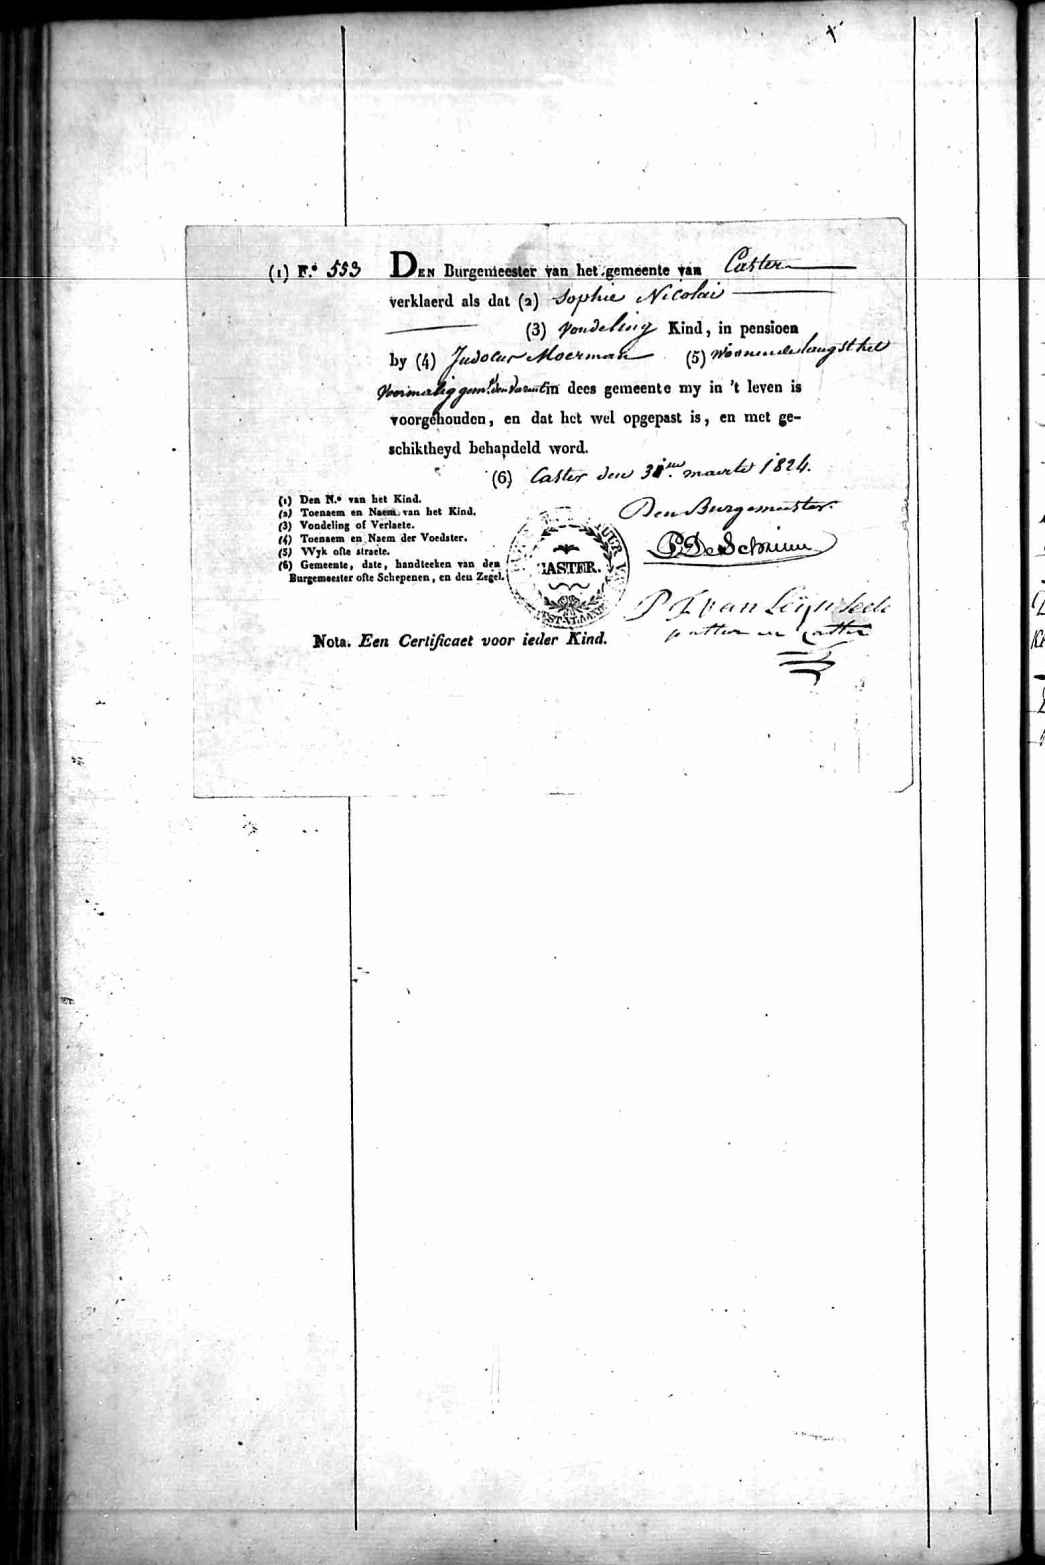 (1) F.º 553 DEN Burgemeester van het gemeente van Caster
verklaerd als dat (2) Sophie Nicolai
(3) vondeling Kind, in pensioen
by (4) Judocus Moerman (5) woonende langst het
voormalig in dees gemeente my in 't leven is
voorgehouden, en dat het wel opgepast is, en met ge-
schiktheyd behandeld word.
(6) Caster den 31.ste maerte 1824.
(1) Den N.º van het Kind.
(2) Toenaem en Naem van het Kind.
(3) Vondeling of Verlaete.
(4) Toenaem en Naem der Voedster.
(5) Wyk ofte straete.
(6) Gemeente, date, handteeken van den
Burgemeester ofte Schepenen, en den Zegel.
Den Burgemeester.
CASTER.
Nota. Een Certificaet voor ieder Kind.